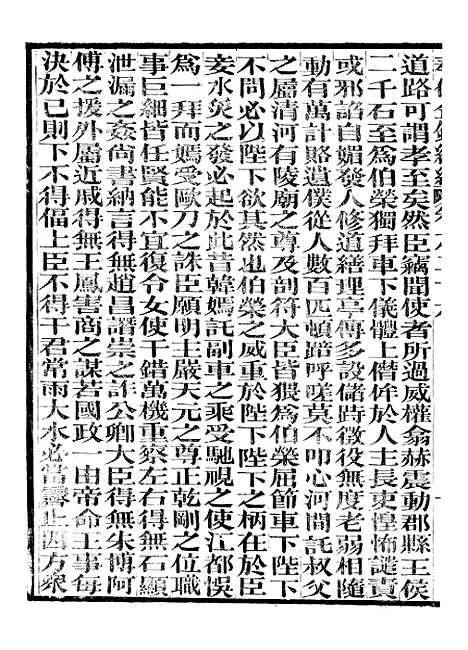 道路可謂孝至矣然臣竊聞使者所過威權翕赫震動郡縣王侯
二千石至爲伯榮獨拜車下儀體上僭侔於人主長吏惶怖譴責
或邪諂自媚發人修道繕理亭傳多設儲峙徵役無度老弱相隨
動有萬計賂遺僕從人數百匹頓踣呼嗟莫不叩心河間託叔父
之屬清河有陵廟之尊及剖符大臣皆猥爲伯榮屈節車下陛下
不問必以陛下欲其然也伯榮之威重於陛下陛下之柄在於臣
妾水災之發必起於此昔韓嫣託副車之乘受馳視之使江都悞
爲一拜而嫣受歐刀之誅臣願明主嚴天元之尊正乾剛之位職
事巨細皆任賢能不宜復令女使干錯萬機重察左右得無石顯
泄漏之姦尚書納言得無趙昌譖崇之詐公卿大臣得無朱博阿
傅之援外屬近戚得無王鳳害商之謀若國政一由帝命王事每
決於已則下不得偪上臣不得干君常雨大水必當霽止四方衆